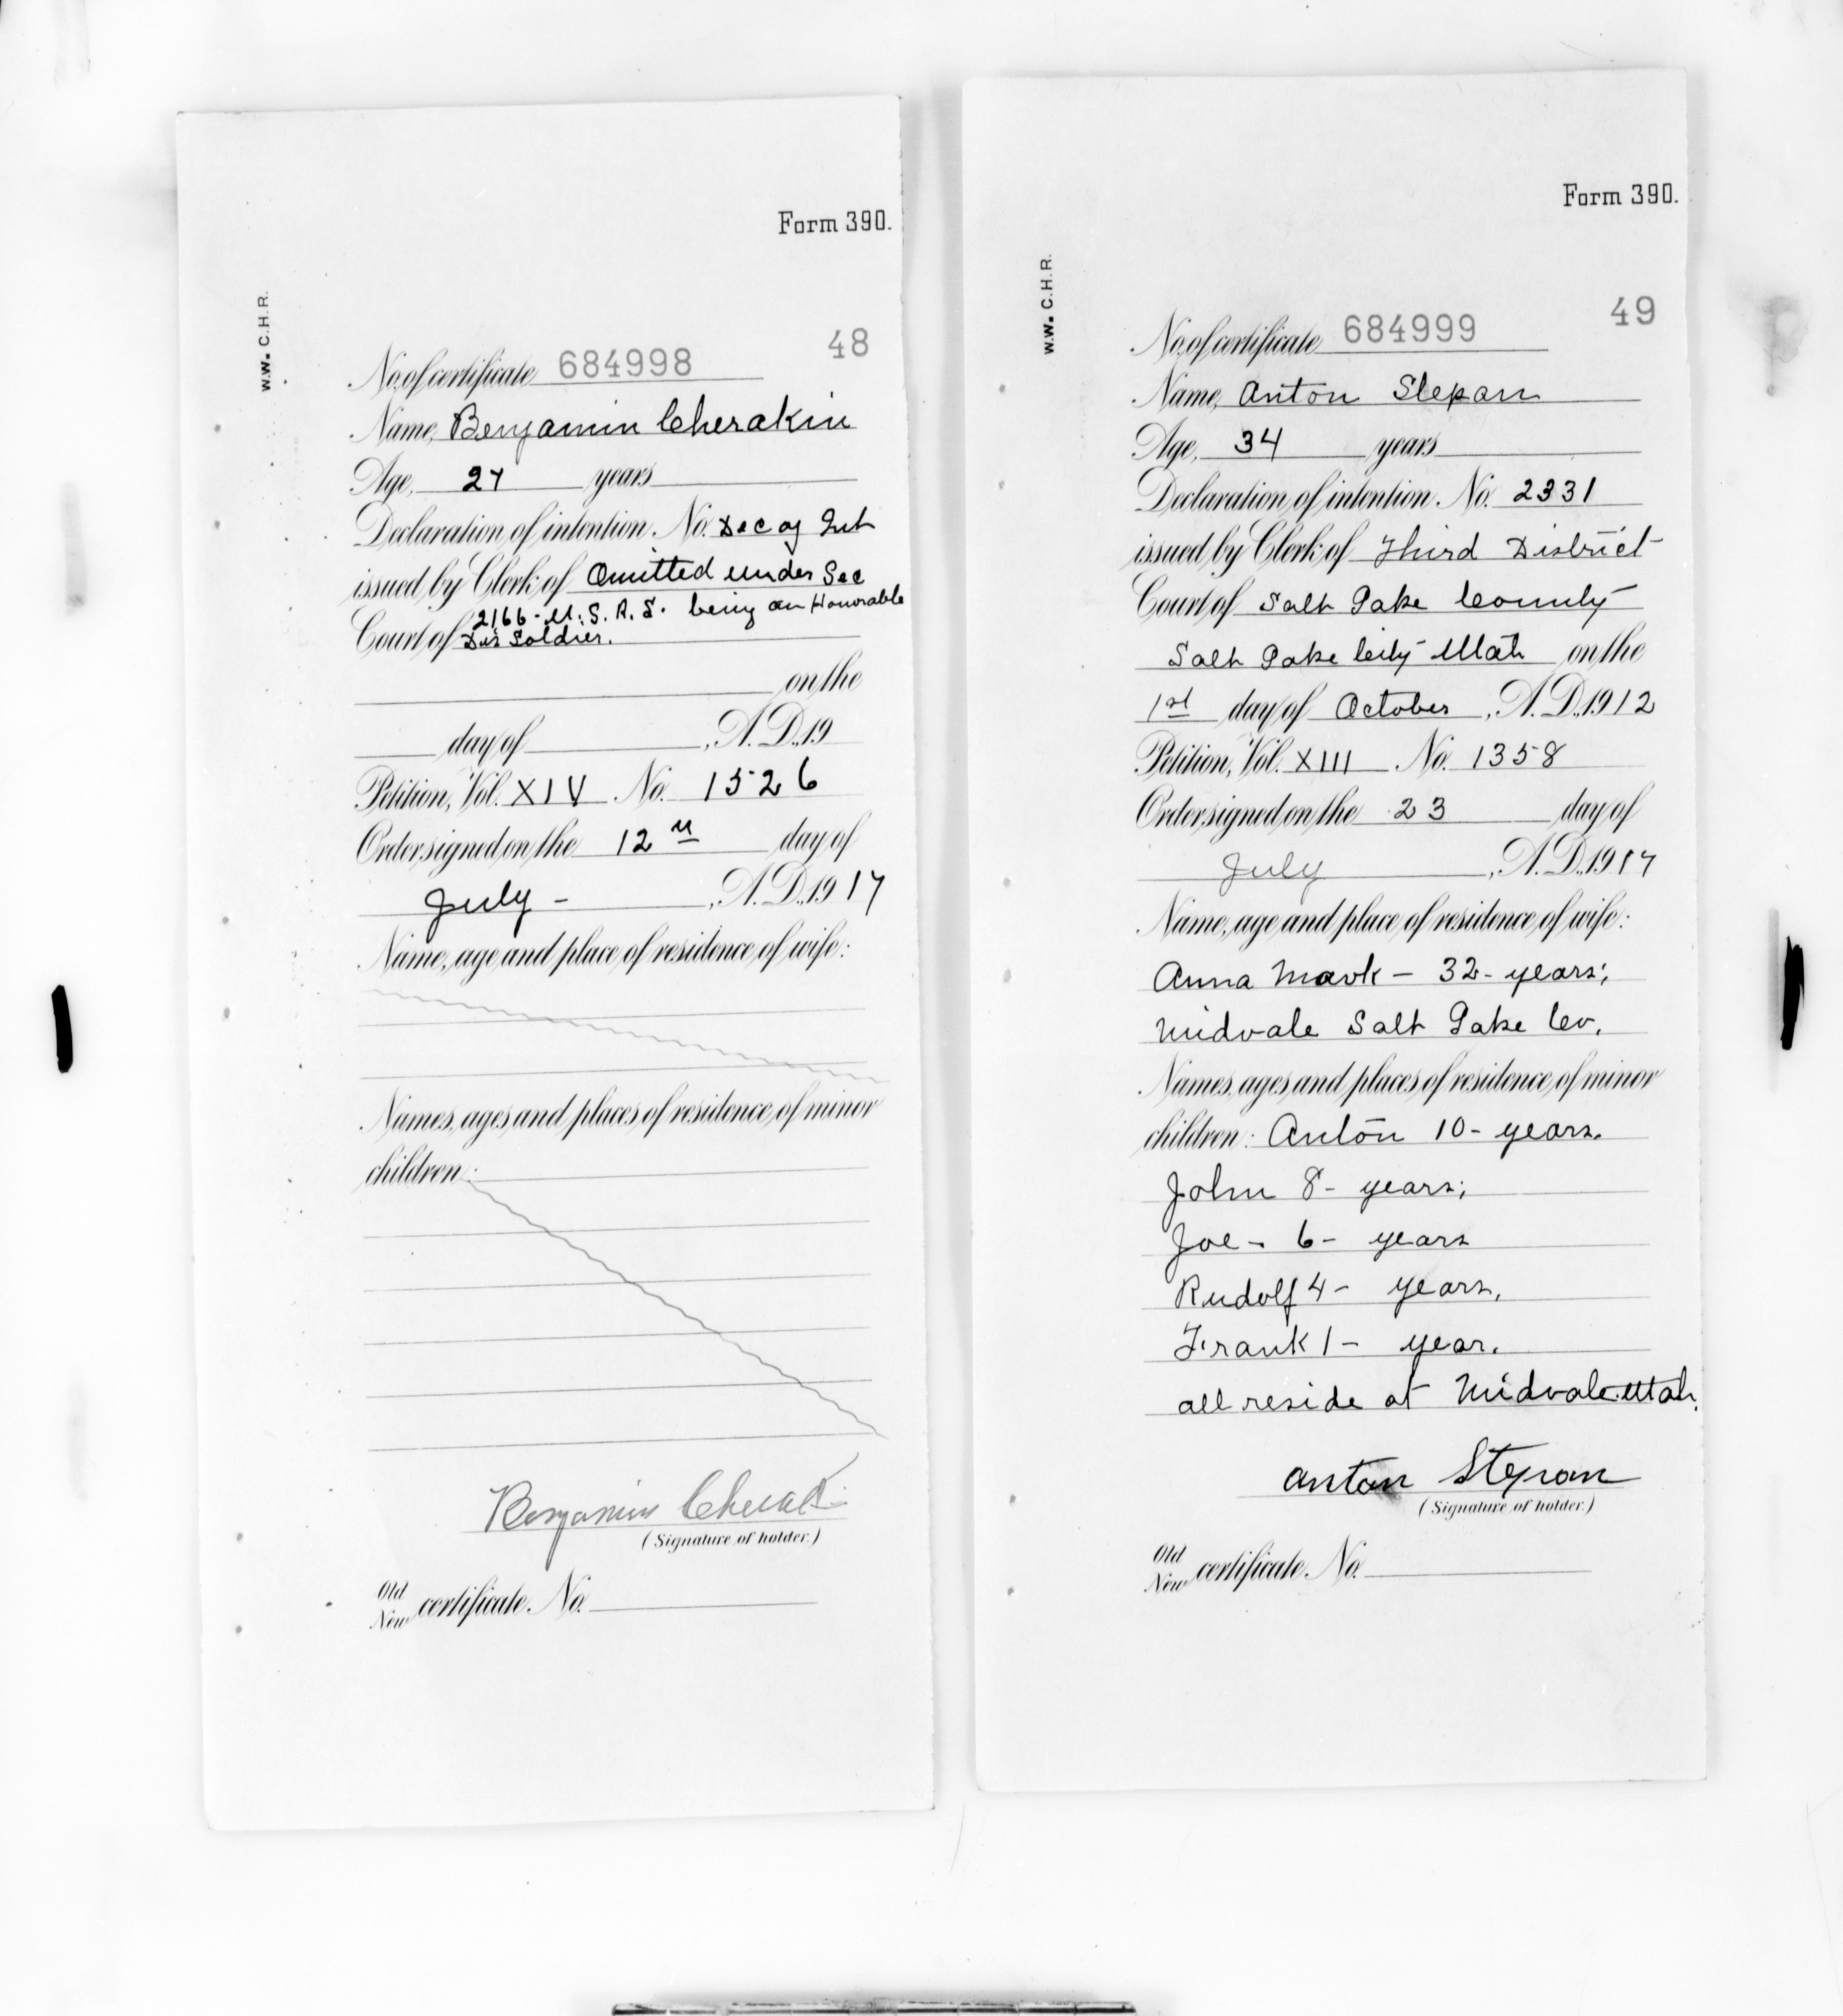 Form 390.
W.W. C.H.R.
48
No. of certificate 684998
Name, Benjamin Cherakin
Age, 27 years
Declaration of intention No. Dec of Int
issued by Clerk of Omitted under Sec
Court of 2166 - U.S.R.S. being an Honorable
Dis Soldier.
on the
day of , A.D. 19
Petition, Vol. XIV No. 1526
Order signed on the 12th day of
July - , A.D. 1917
Name, age and place of residence of wife:
Names, ages and places of residence of minor
children:
Benjamin
(Signature of holder.)
Old
New certificate No.
Form 390.
W.W. C.H.R.
49
No. of certificate 684999
Name, Anton Stepan
Age, 34 years
Declaration of intention No. 2331
issued by Clerk of Third District
Court of Salt Lake County
Salt Lake City Utah on the
1st day of October , A.D. 1912
Petition, Vol. XIII No. 1358
Order signed on the 23 day of
July , A.D. 1917
Name, age and place of residence of wife:
Anna Mavk - 32 - years;
Midvale Salt Lake Co.
Names, ages and places of residence of minor
children: Anton 10 - years.
John 8 - years;
Joe - 6 - years
Rudolf 4 - years,
Frank 1 - year.
all reside at Midvale Utah.
Anton Stepan
(Signature of holder.)
Old
New certificate No.